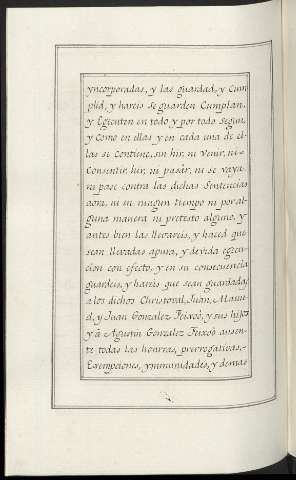 yncorporadas, y las guardad, y Cum
plid, y hareis se guarden Cumplan,
y Egecuten en todo y por todo segun,
y Como en ellas y en cada una de el-
las se Contiene, sin hir, ni Venir, ni
Consentir hir, ni pasàr, ni se vaya,
ni pase contra las dichas Sentencias
aora, ni en ningun tiempo ni por al-
guna manera ni pretesto alguno, y
antes bien las llevareis, y haced que
sean llevadas apura, y devida egecu-
cion con efecto, y en su consecuencia
guardeis, y hareis que sean guardadas
a los dichos Christoval, Juan, Manu
el, y Juan Gonzalez Feixoò, y sus hijos
y à Agustin Gonzalez Feixoò ausen-
te todas las honrras, prerrogativas,
Exempciones, ymmunidades, y demas